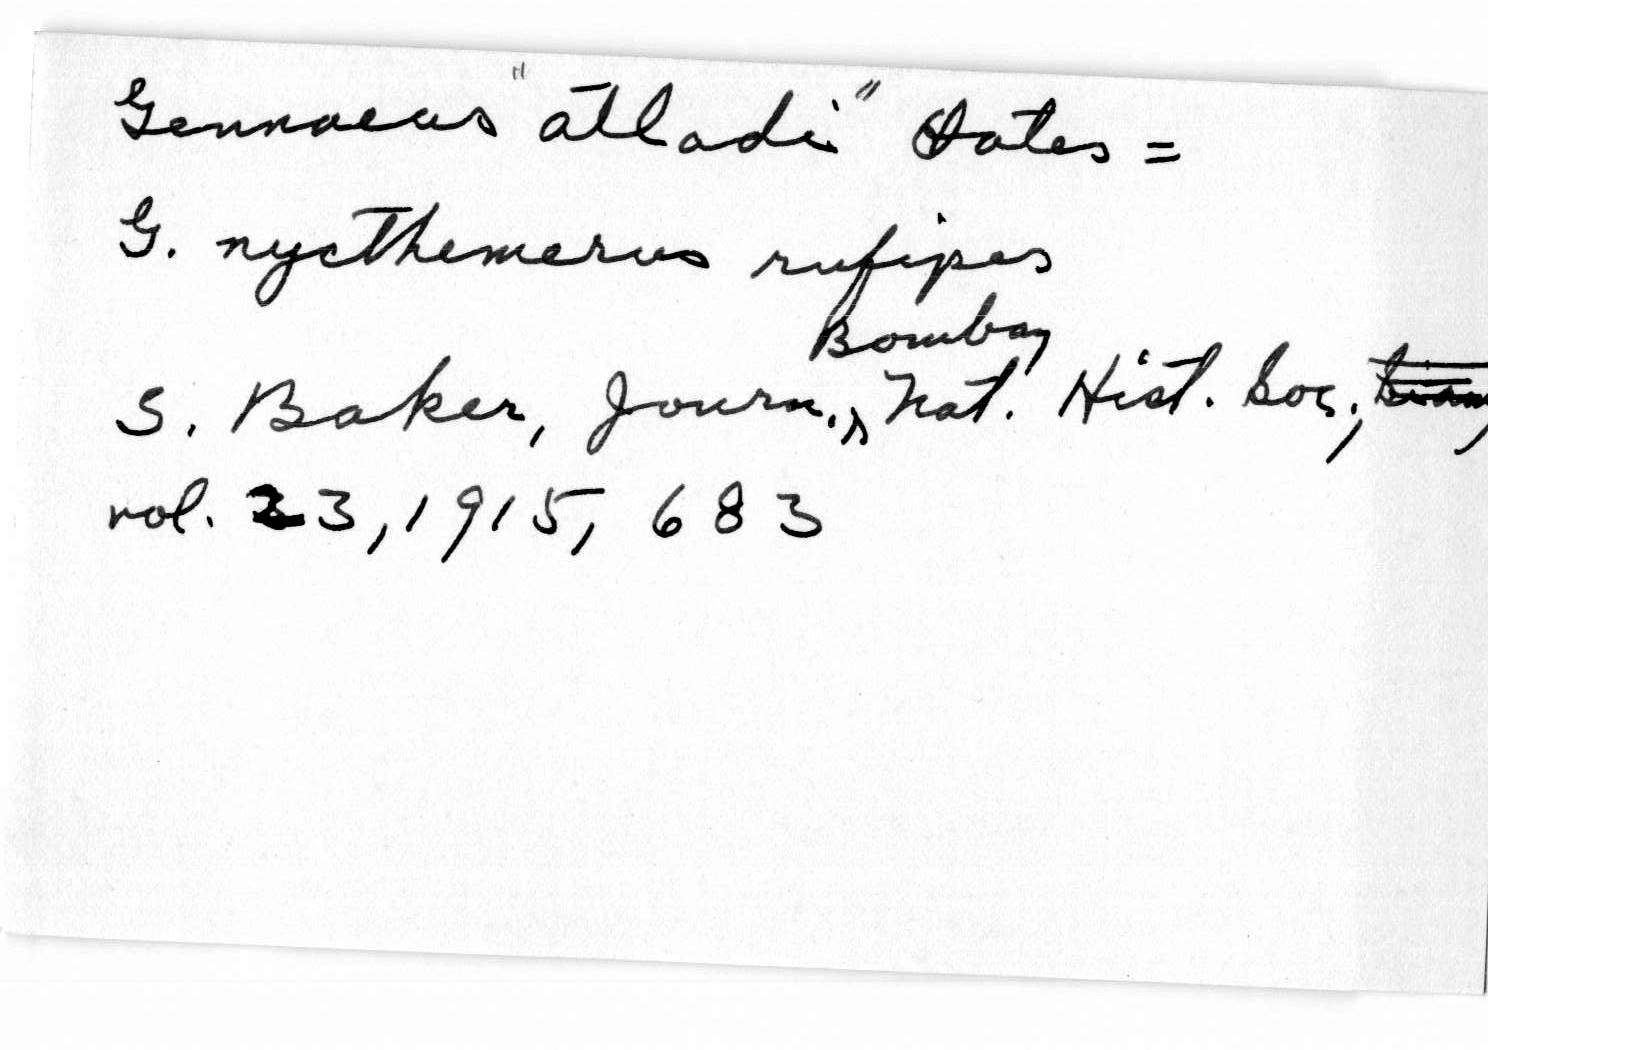 Gennaeus "atladi" Oates =
G. nycthemerus rufipes
Bombay
S. Baker, Journ., Nat. Hist. Soc.,
vol. 23, 1915, 683